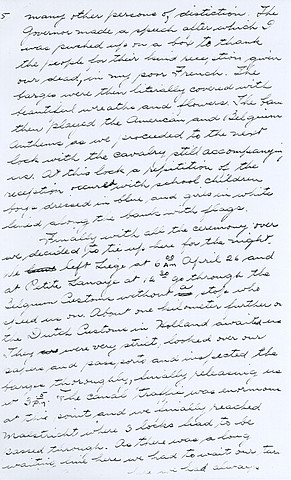 5 many other persons of distiction. The
Governor made a speech after which I
was pushed up on a box to thank
the people for their kind reception given
our dead, in my poor French. The
barges were then literally covered with
beautiful wreaths and flowers. The ban
then played the American and Belgium
Anthems as we proceeded to the next
lock with the cavalry still accompanying
us. At this lock a repitition of the
reception occured with school children
boys dressed in blue and girls in white
lined along the bank with flags.
Finally with all the ceremony over
we decided to tie up here for the night.
We left Liege at 6 00 AM April 26 and
at Petite Lanaye at 12 30 go through the
Belgium Customs without a stop who
speed us on. About one kilometer further on
the Dutch Customs in Holland awaited us
They were very strict, looked over our
papers and passports and inspected the
barges thoroughly, finally releasing us
at 3 PM. The canal traffic was enormous
at this point and we finally reached
Maastricht where 3 locks had to be
passed through. As there was a long
waiting line here we had to wait our tur
we had away.